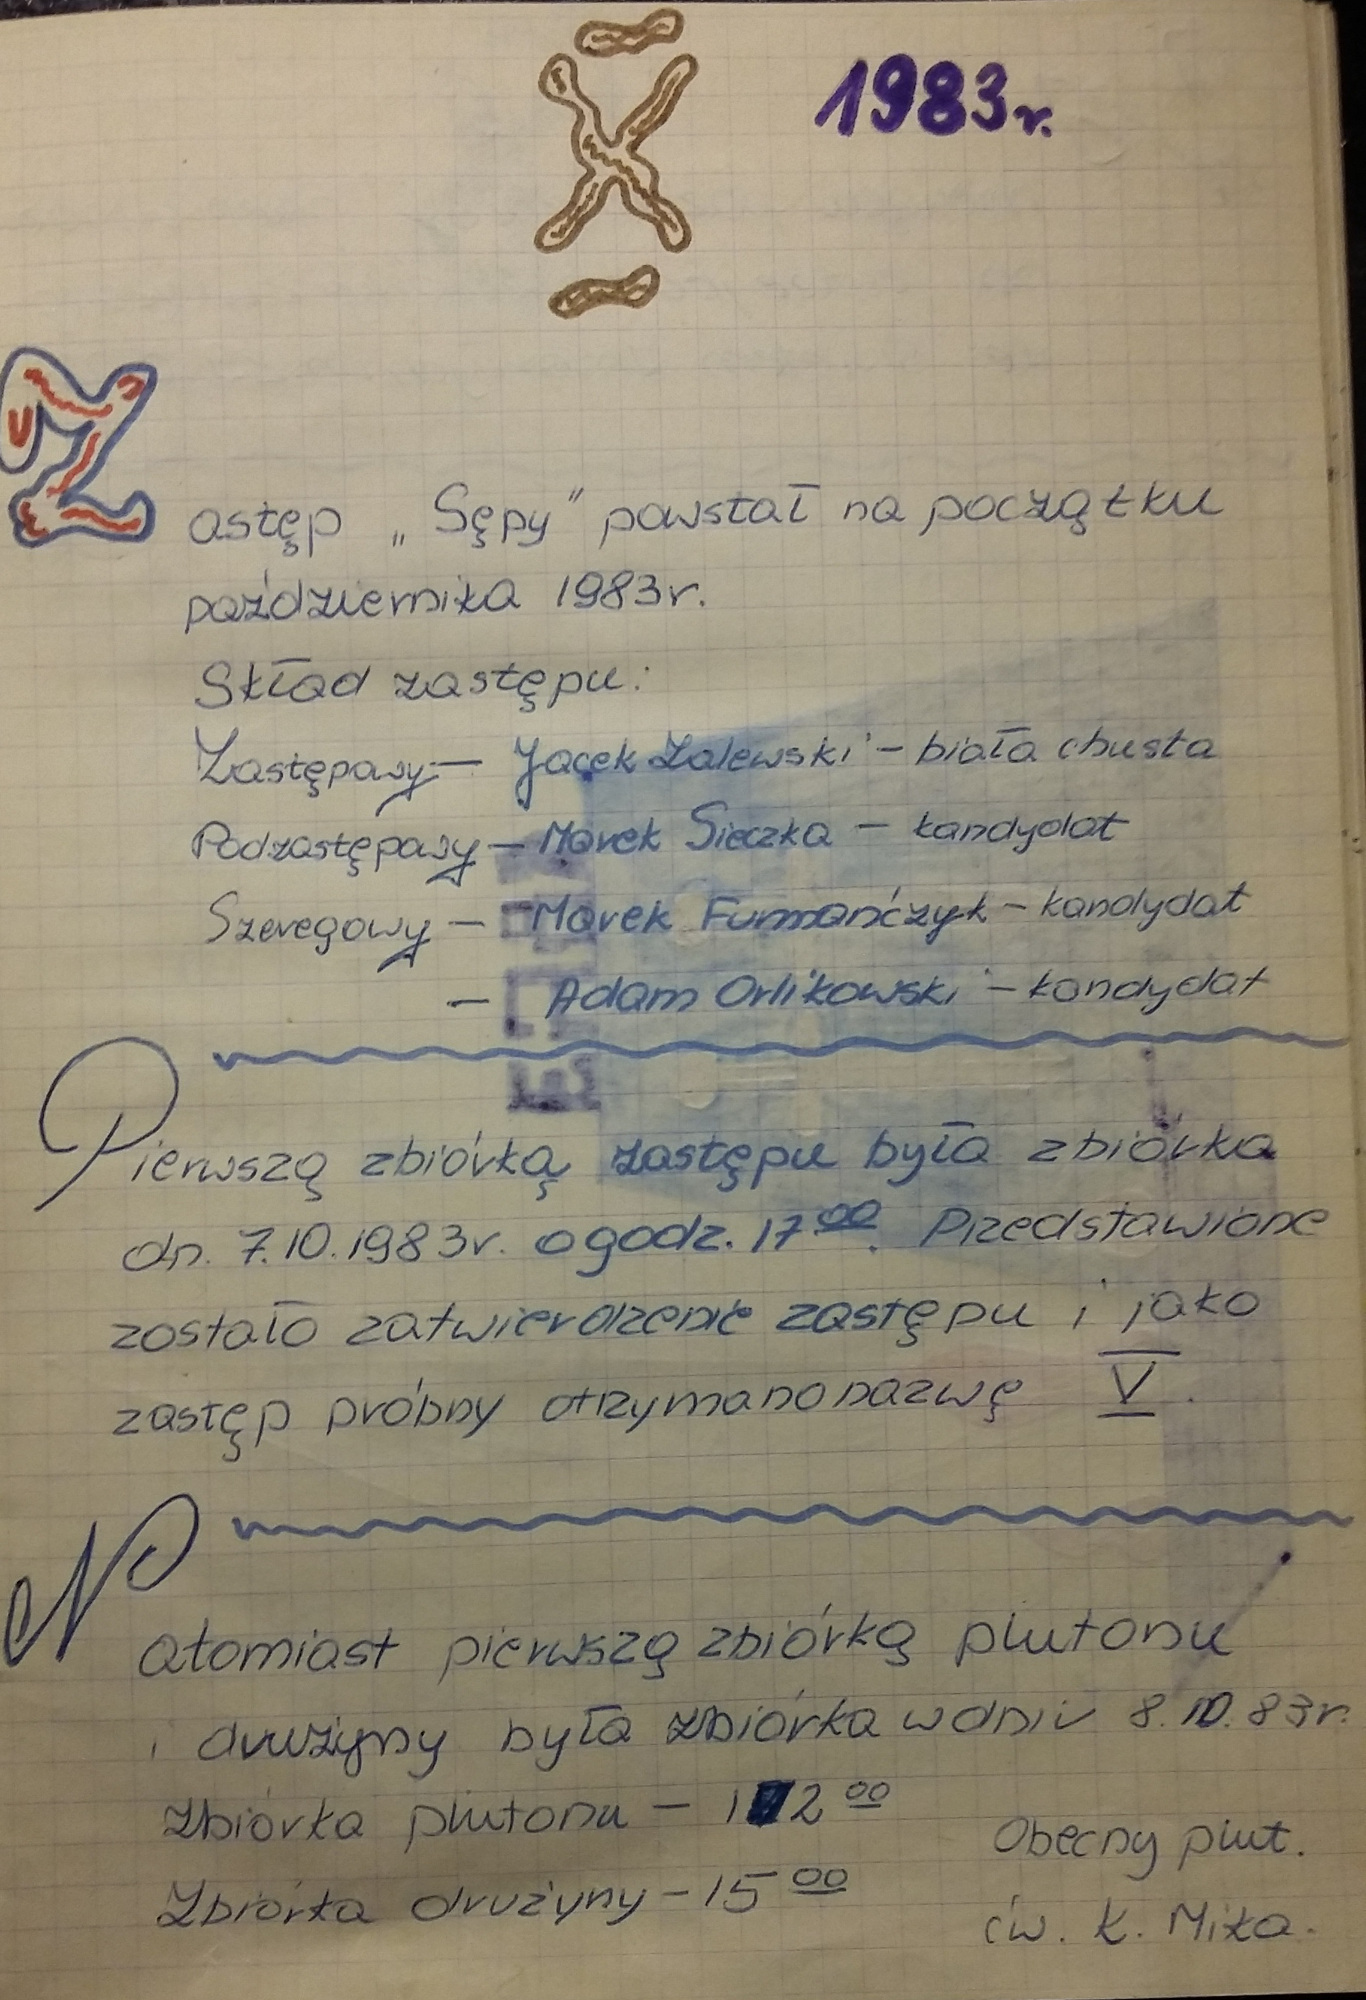 X 1983r.
Zastęp „Sępy” powstał na początku
października 1983r.
Skład zastępu:
Zastępowy — Jacek Zalewski — biała chusta
Podzastępowy — Marek Sieczka — kandydat
Szeregowy — Marek Furmańczyk — kandydat
— Adam Orlikowski — kandydat
Pierwszą zbiórką zastępu była zbiórka
dn. 7.10.1983r. o godz. 17⁰⁰. Przedstawione
zostało zatwierdzenie zastępu i jako
zastęp próbny otrzymano nazwę V.
Natomiast pierwszą zbiórką plutonu
i drużyny była zbiórka w dniu 8.10.83r.
Zbiórka plutonu — 12⁰⁰
Zbiórka drużyny — 15⁰⁰
Obecny plut.
ćw. K. Mika.